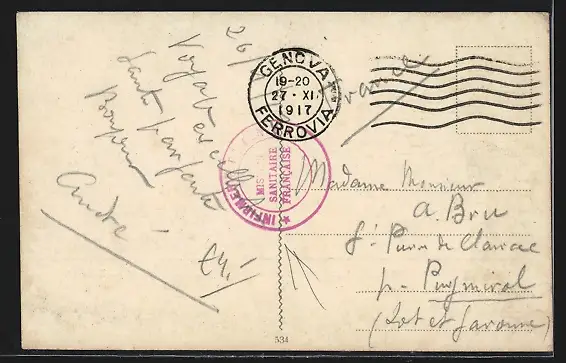 26/
Voyage excellent
Santé parfaite
Bonjour
André
GENOVA
19-20
27 · XI
1917
FERROVIA
MISSION
SANITAIRE
FRANÇAISE
France
Madame Monsieur
A. Bru
St Pierre de Clairac
p. Puymirol
(Lot et Garonne)
534